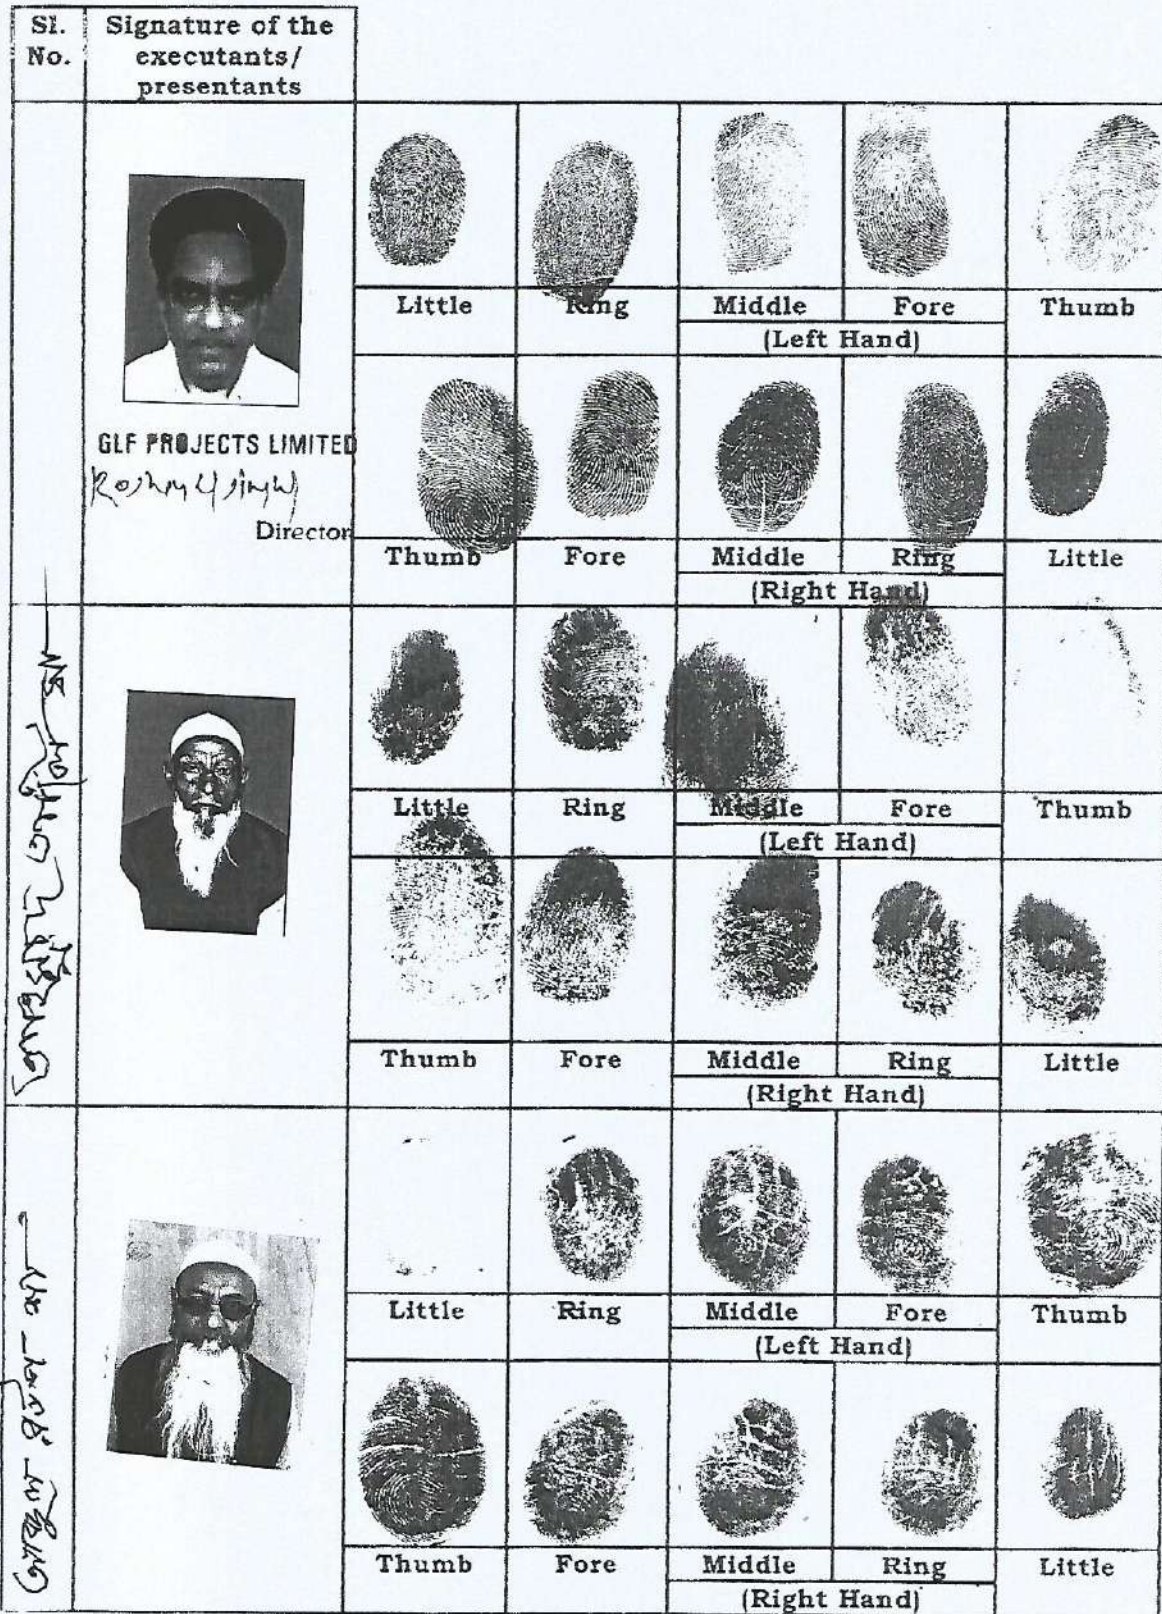 Sl. No.
Signature of the executants/ presentants
Little Ring Middle Fore Thumb
(Left Hand)
GLF PROJECTS LIMITED
Director
Thumb Fore Middle Ring Little
(Right Hand)
Little Ring Middle Fore Thumb
(Left Hand)
Thumb Fore Middle Ring Little
(Right Hand)
Little Ring Middle Fore Thumb
(Left Hand)
Thumb Fore Middle Ring Little
(Right Hand)